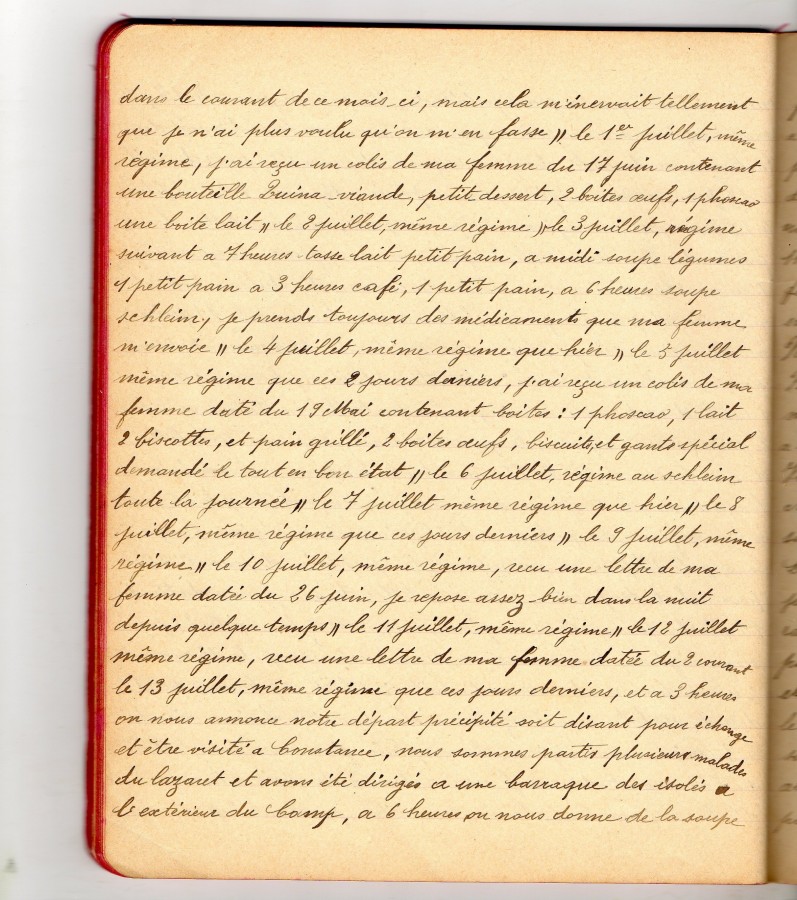 dans le courant de ce mois-ci, mais cela m'inervait tellement
que je n'ai plus voulu qu'on m'en fasse „ le 1er juillet, même
régime, j'ai reçu un colis de ma femme du 17 juin contenant
une bouteille Quina-viande, petit dessert, 2 boites œufs, 1 phoscao
une boite lait „ le 2 juillet, même régime „ le 3 juillet, régime
suivant a 7 heures tasse lait petit pain, a midi soupe légumes
1 petit pain a 3 heures café, 1 petit pain, a 6 heures soupe
schleim, je prends toujours des médicaments que ma femme
m'envoie „ le 4 juillet, même régime que hier „ le 5 juillet
même régime que ces 2 jours derniers, j'ai reçu un colis de ma
femme daté du 19 Mai contenant boites : 1 phoscao, 1 lait
2 biscottes, et pain grillé, 2 boites œufs, biscuits, et gants spécial
demandé le tout en bon état „ le 6 juillet, régime au schleim
toute la journée „ le 7 juillet même régime que hier „ le 8
juillet, même régime que ces jours derniers „ le 9 juillet, même
régime „ le 10 juillet, même régime, recu une lettre de ma
femme datée du 26 juin, je repose assez bien dans la nuit
depuis quelque temps „ le 11 juillet, même régime „ le 12 juillet
même régime, recu une lettre de ma femme datée du 2 courant
le 13 juillet, même régime que ces jours derniers, et a 3 heures
on nous annonce notre départ précipité soit disant pour échange
et être visité a Constance, nous sommes partis plusieurs malades
du lazaret et avons été dirigés a une barraque des isolés a
l'extérieur du Camp, a 6 heures on nous donne de la soupe